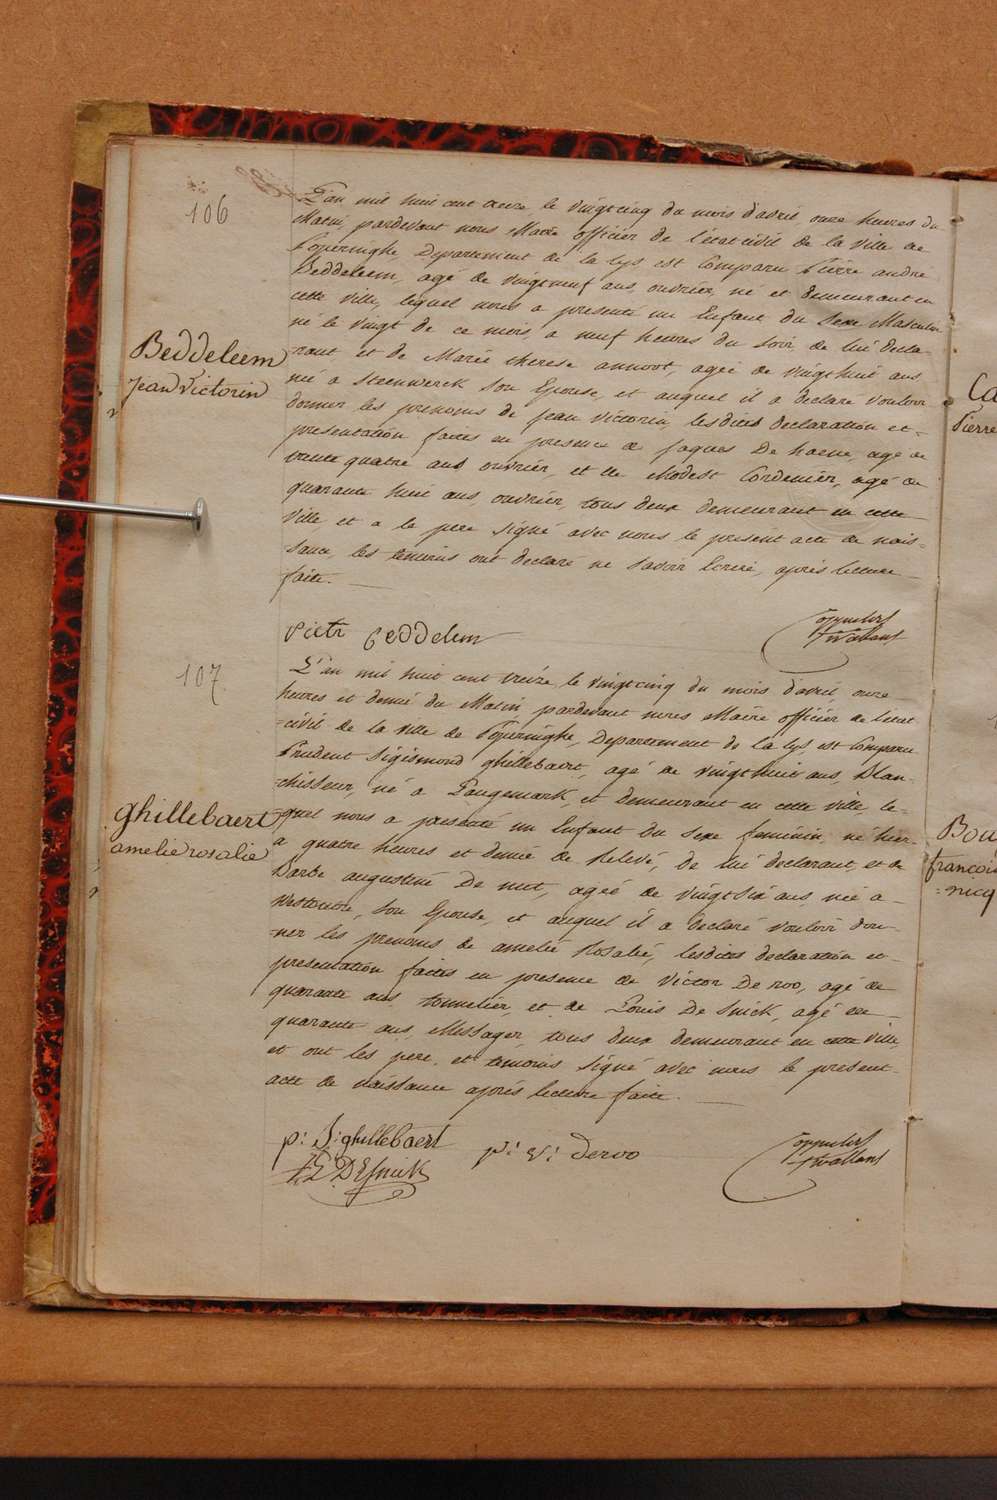 106
L'an mil huit cent treize, le vingtcinq du mois d'avril, onze heures du
Matin, pardevant nous Maire officier de l'état civil de la Ville de
Poperinghe, Departement de la Lys est Comparu Pierre andre
Beddeleem, agé de vingtneuf ans, ouvrier, né et demeurant en
cette Ville, lequel nous a presenté un Enfant du Sexe Masculin
né le vingt de ce mois, a neuf heures du soir, de lui decla-
rant et de Marie therese annoot, agée de vingthuit ans
née a Steenwerck Son Epouse, et auquel il a declaré vouloir
donner les prenoms de jean victorin, lesdites declaration et-
presentation faites en presence de jaques De haene, agé de
trente quatre ans ouvrier, et de Modest Cordenier, agé de
quarante huit ans, ouvrier, tous deux demeurant en cette
Ville et a le pere Signé avec nous le present acte de nais-
sance, les temoins ont declaré ne Savoir Ecrire, après lecture
faite.
Beddeleem
jean Victorin
Pietr Beddelem
107
L'an mil huit cent treize, le vingtcinq du mois d'avril, onze
heures et demie du Matin pardevant nous Maire officier de l'état
=civil de la ville de Poperinghe, Departement de la Lys, est Comparu
Prudent Sigismond ghillebaert, agé de vingthuit ans, Blan-
=chisseur, né a Langemark, et demeurant en cette ville, le-
=quel nous a presenté un Enfant du Sexe feminin, né hier
a quatre heures et demie de Relevé, de lui declarant, et de
Barbe augustine De nut, agée de vingtsix ans, née a-
Westoutre, Son Epouse, et auquel il a declaré vouloir don-
=ner les prenoms de amelie Rosalie, lesdites declaration et
presentation faites en presence de Victor De roo, agé de
quarante ans tonnelier, et de Louis De Snick, agé de
quarante ans, Messager, tous deux demeurant en cette Ville,
et ont les pere et temoins Signé avec nous le present
acte de naissance après lecture faite.
ghillebaert
amelie rosalie
p: S: ghillebaert
p: v: deroo
L DESnick
Ca
Pierre
Bou
francois
=nicq